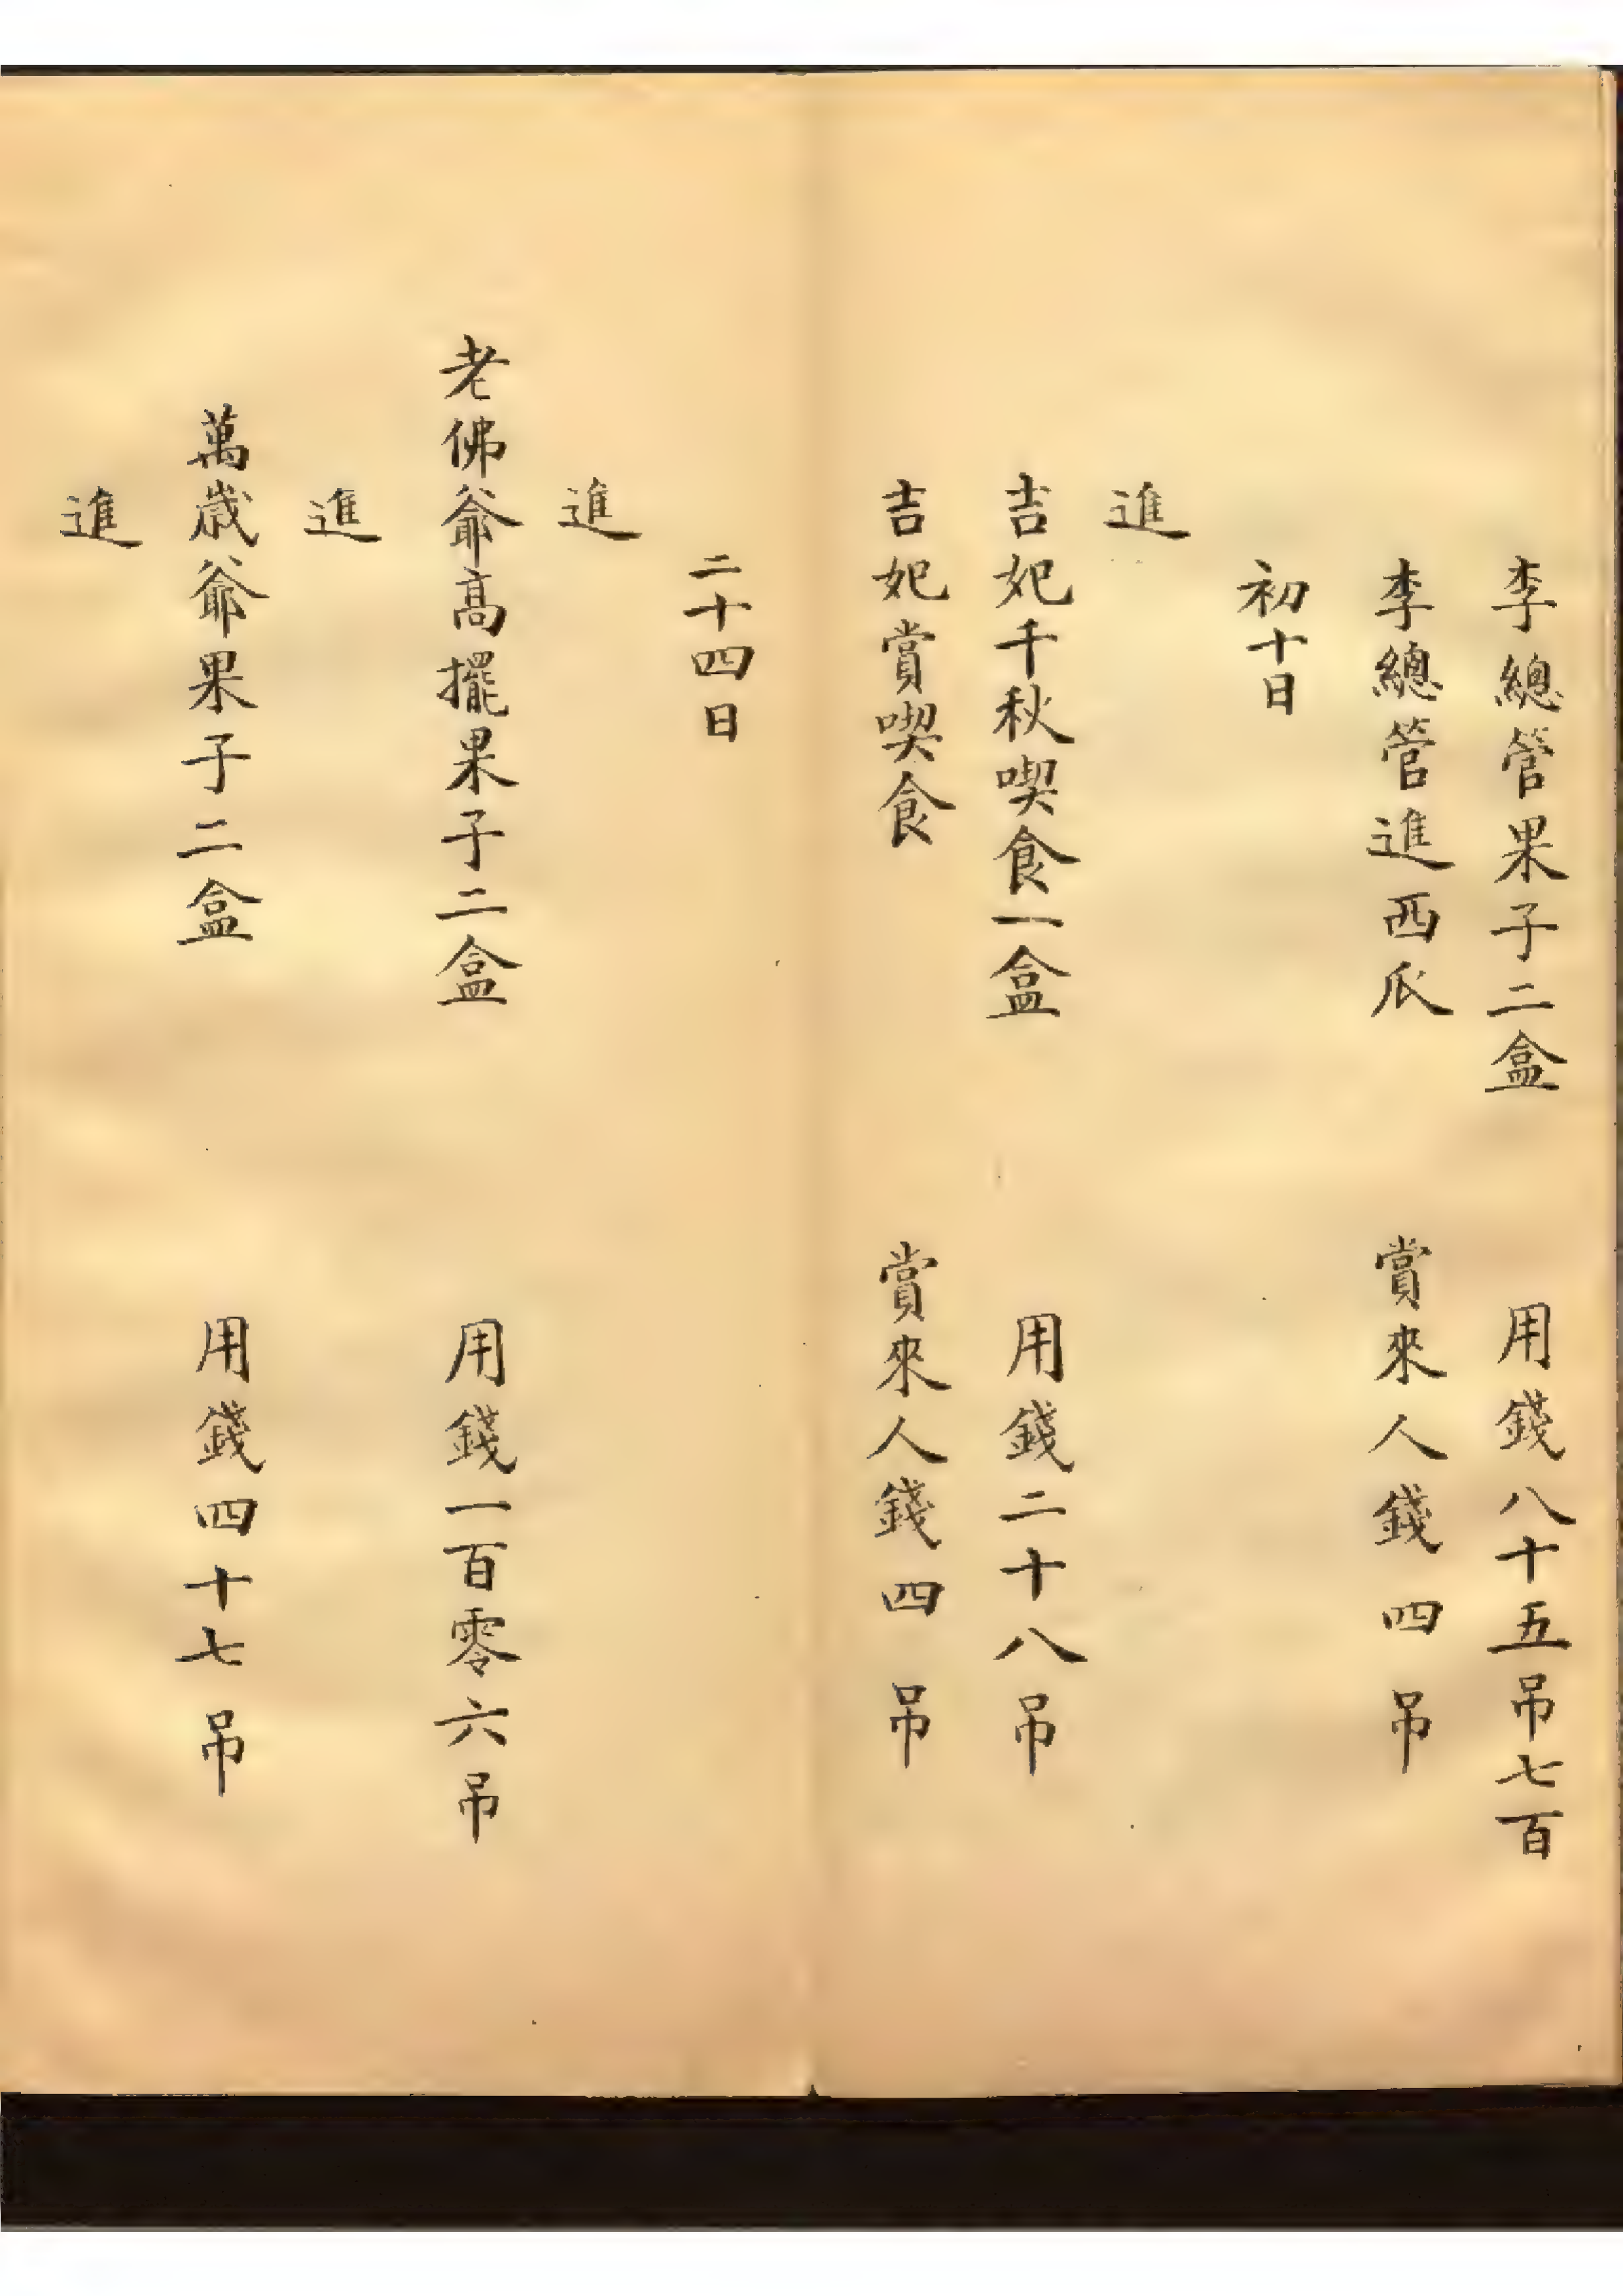 李總管果子二盒 用錢八十五吊七百
李總管進西瓜 賞來人錢四吊
初十日
進
吉妃千秋喫食一盒 用錢二十八吊
吉妃賞喫食 賞來人錢四吊
二十四日
進
老佛爺高擺果子二盒 用錢一百零六吊
進
萬歲爺果子二盒 用錢四十七吊
進